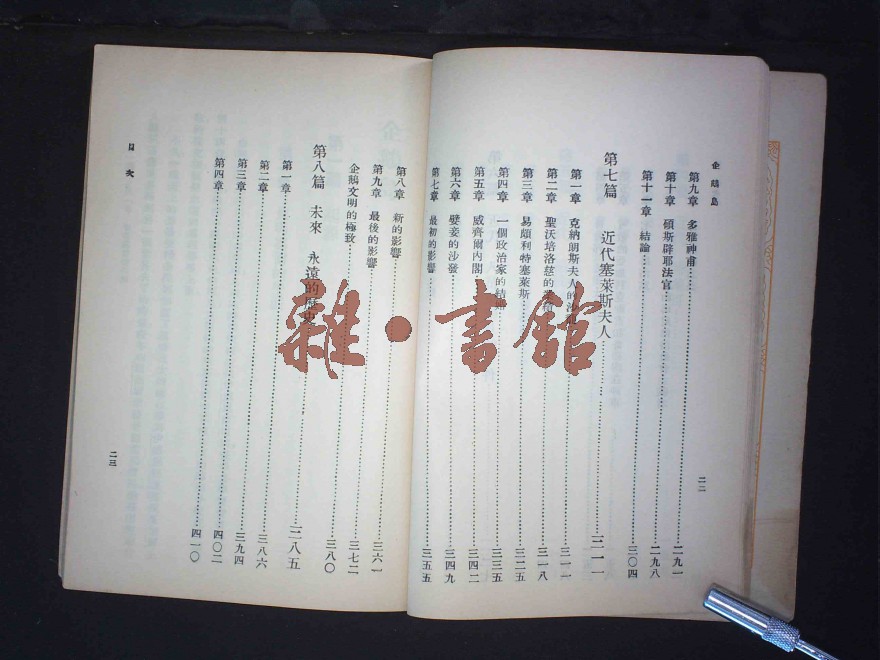 企鵝島
第九章 多雅神甫 二九一
第十章 碩斯辟耶法官 二九八
第十一章 結論 三〇四
第七篇 近代塞萊斯夫人
第一章 克納朗斯夫人的 三一一
第二章 聖沃培洛慈的 三一八
第三章 易頗利特塞萊斯 三二五
第四章 一個政治家的結 三三五
第五章 威齊爾內閣 三四二
第六章 嬖妾的沙發 三四九
第七章 最初的影響 三五五
二二
第八章 新的影響 三六一
第九章 最後的影響
企鵝文明的極致 三七二
第八篇 未來 永遠的歷史 三八〇
第一章 三八五
第二章 三八六
第三章 三九四
第四章 四〇二
四一〇
目次
二三
雜·書館